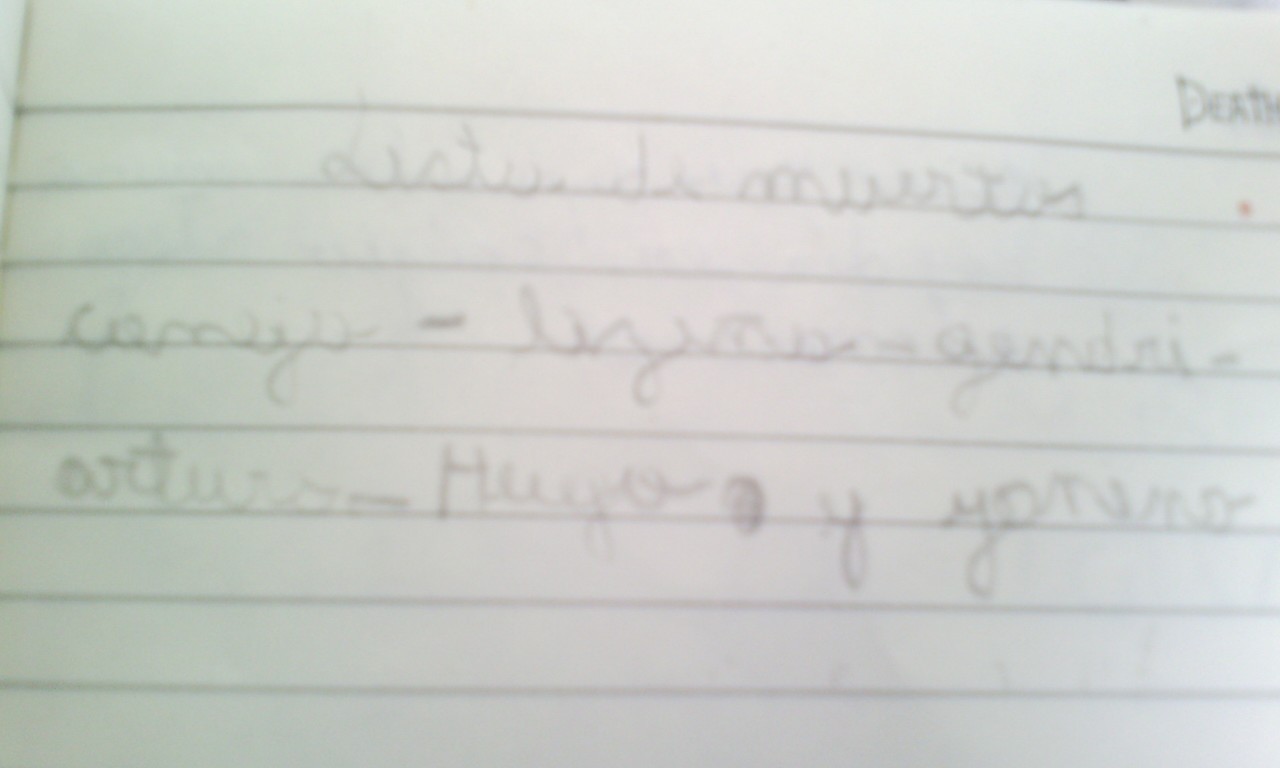 DEATH
Lista de muertos
conejo - lezma - gendri -
arturo - Hugo y yorena